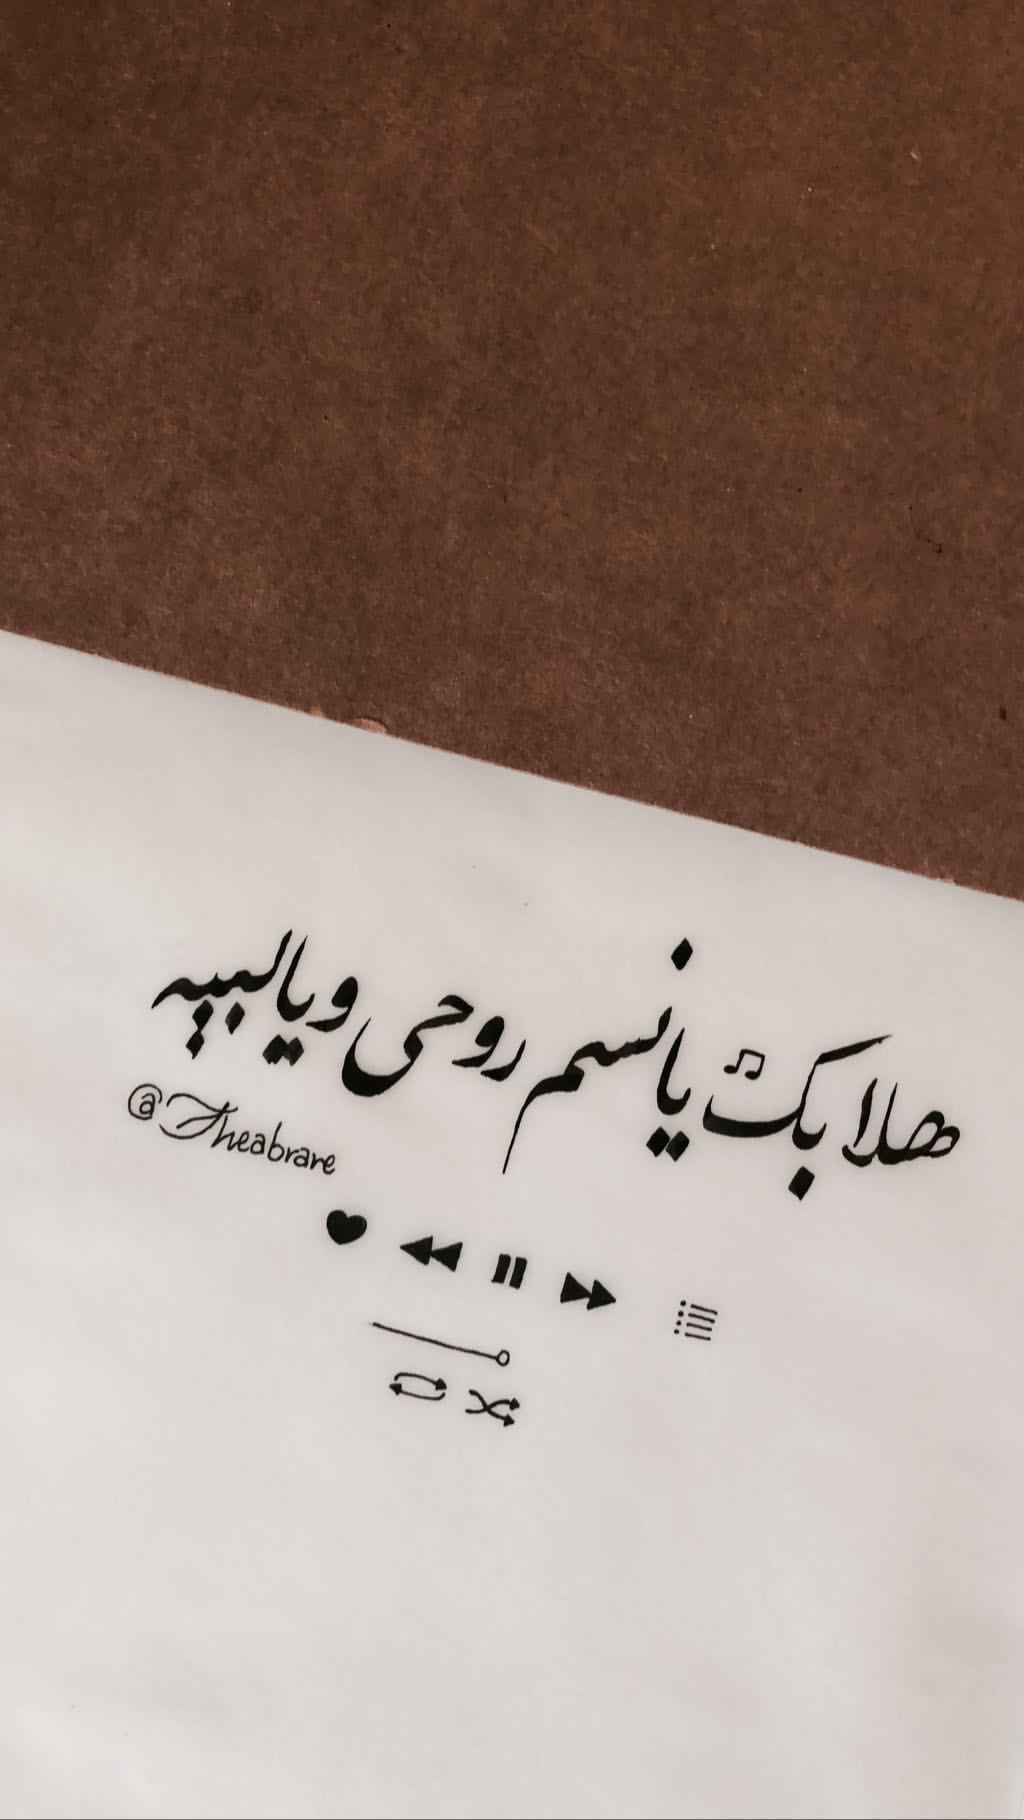 هلا بك يا نسم روحي ويا لبيه
@Theabrare